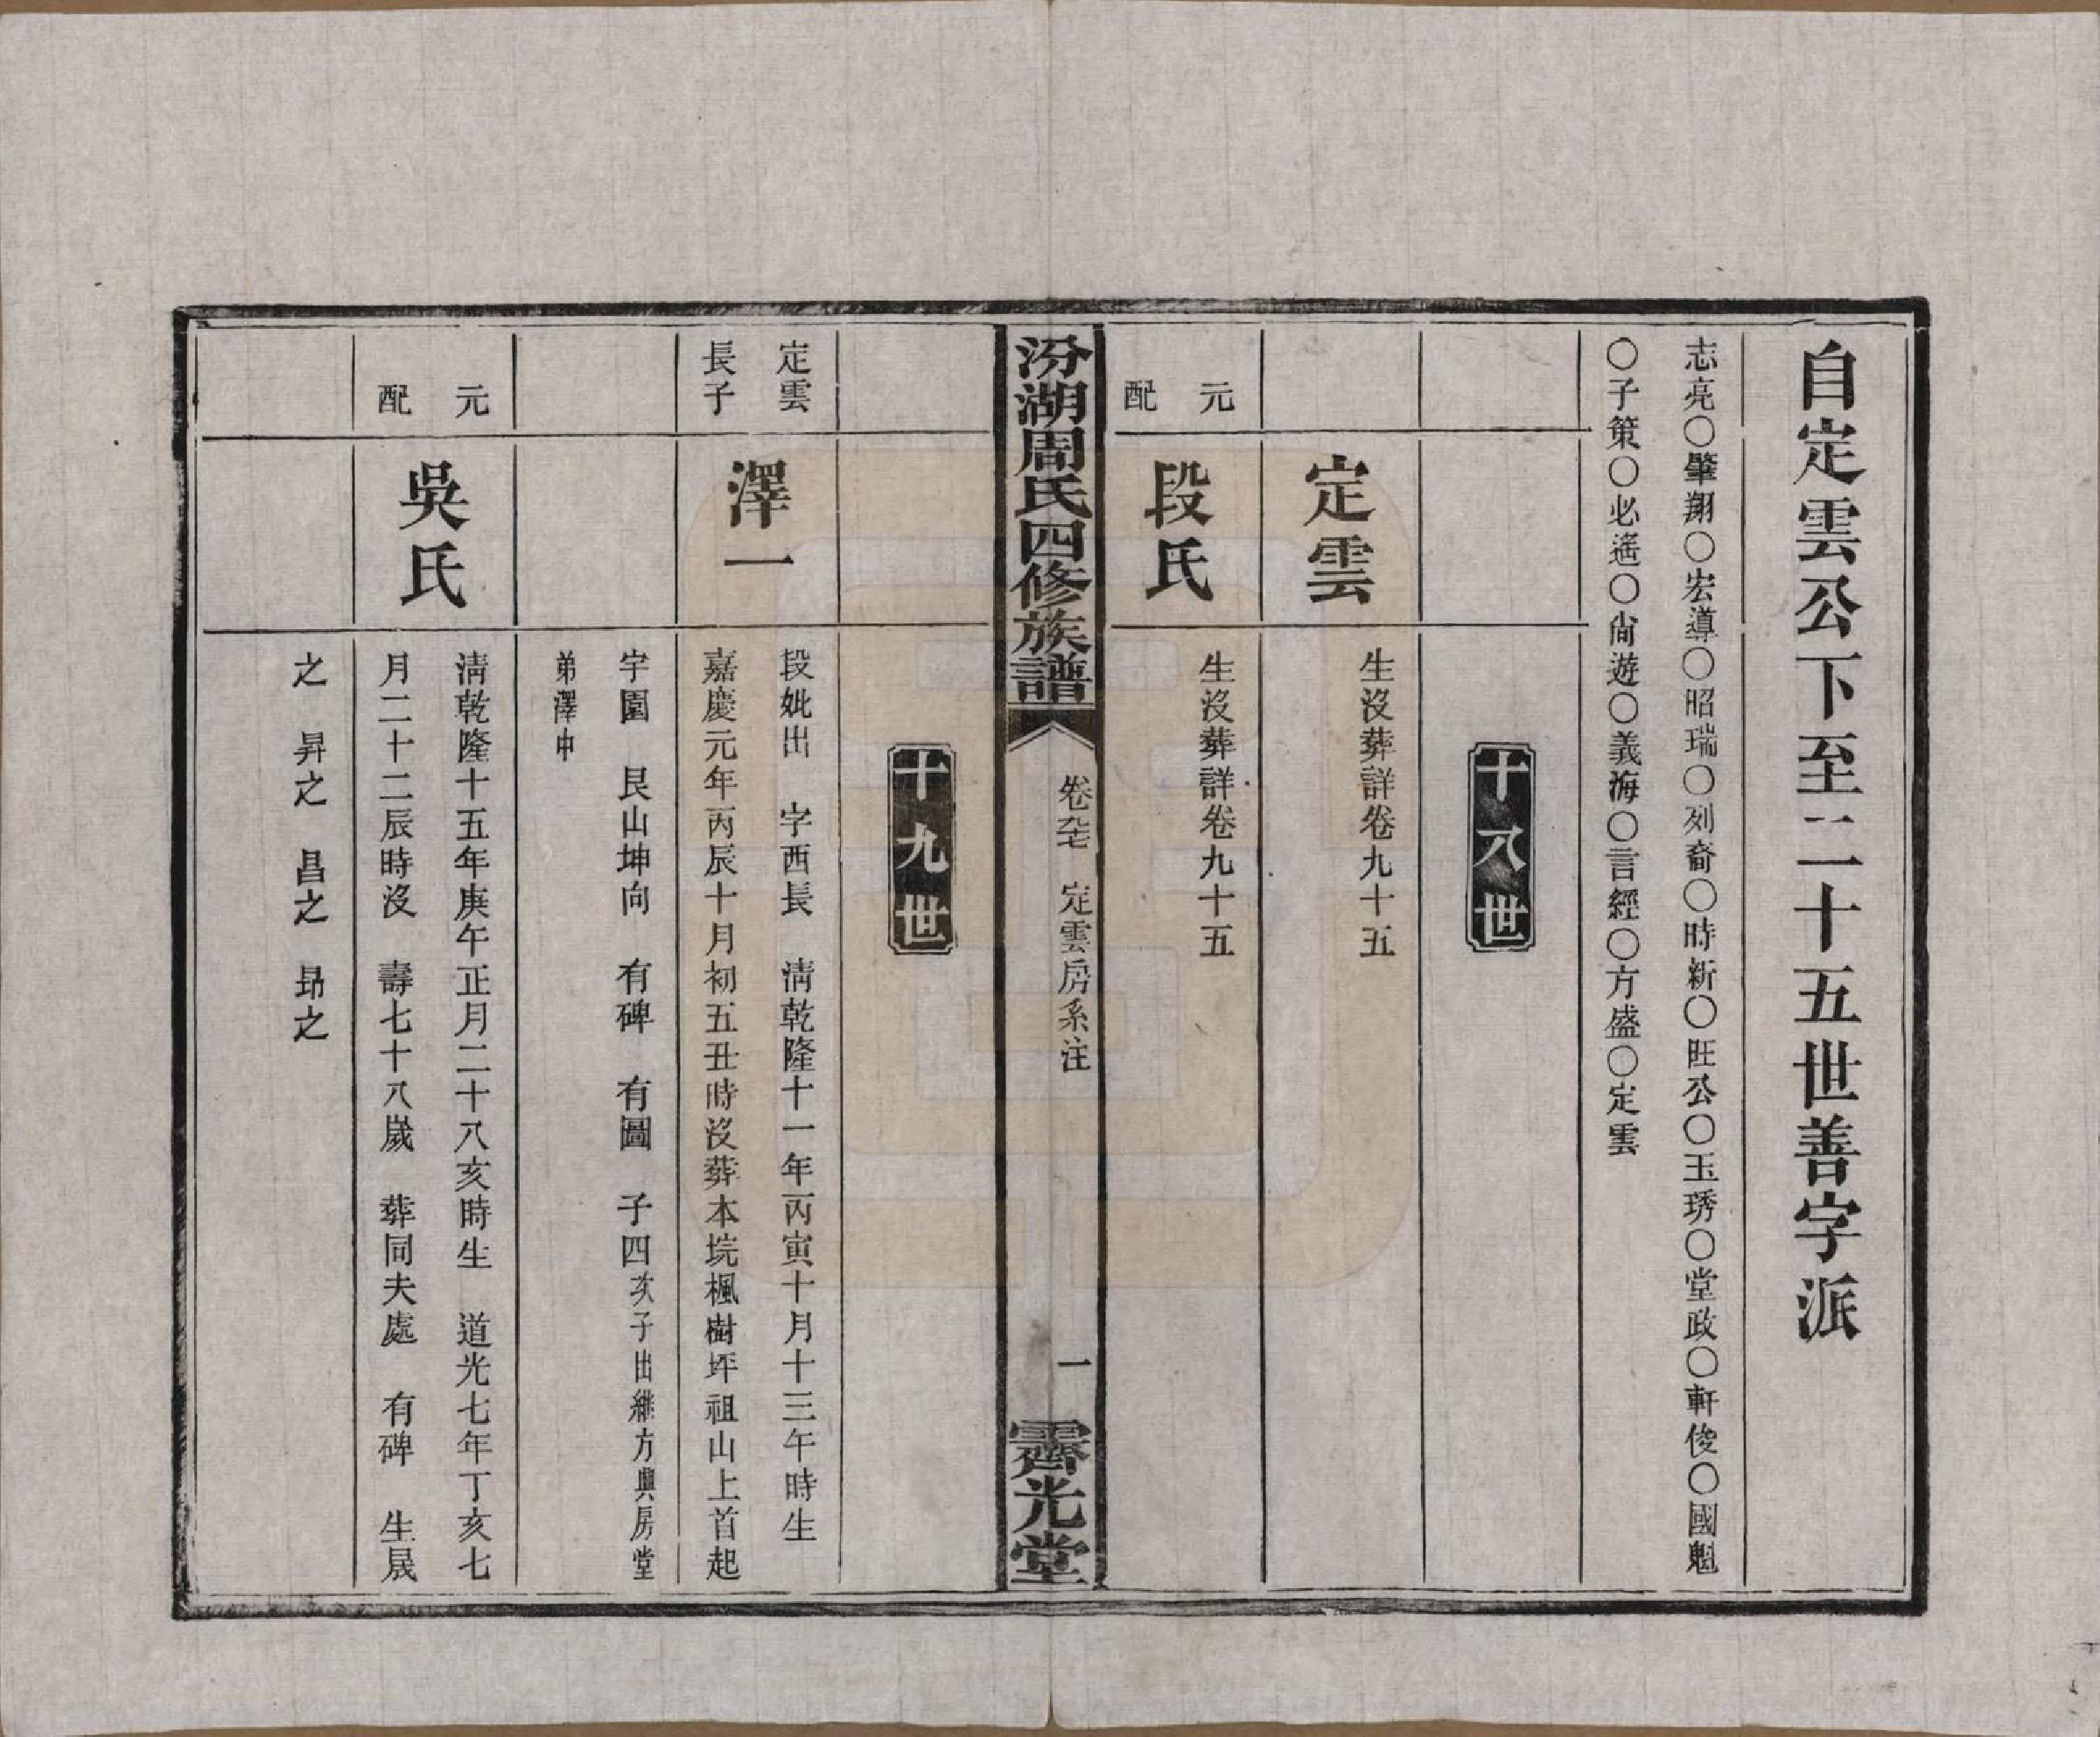 自定雲公下至二十五世善字派
志亮〇肇翔〇宏導〇昭瑞〇列裔〇時新〇旺公〇玉琇〇堂政〇軒俊〇國魁
〇子策〇必遙〇尚遊〇義海〇言經〇方盛〇定雲
十八世
定雲
生沒葬詳卷九十五
元配
段氏
生沒葬詳卷九十五
汾湖周氏四修族譜
卷 定雲房系注
一
霽光堂
十九世
定雲
長子
澤一
段妣出 字西長 淸乾隆十一年丙寅十月十三午時生
嘉慶元年丙辰十月初五丑時沒葬本垸楓樹坪祖山上首起
字圍 艮山坤向 有碑 有圖 子四次子出繼方典房堂
弟澤申
元
配
吳氏
淸乾隆十五年庚午正月二十八亥時生 道光七年丁亥七
月二十二辰時沒 壽七十八歲 葬同夫處 有碑 生晟
之 昇之 昌之 昻之